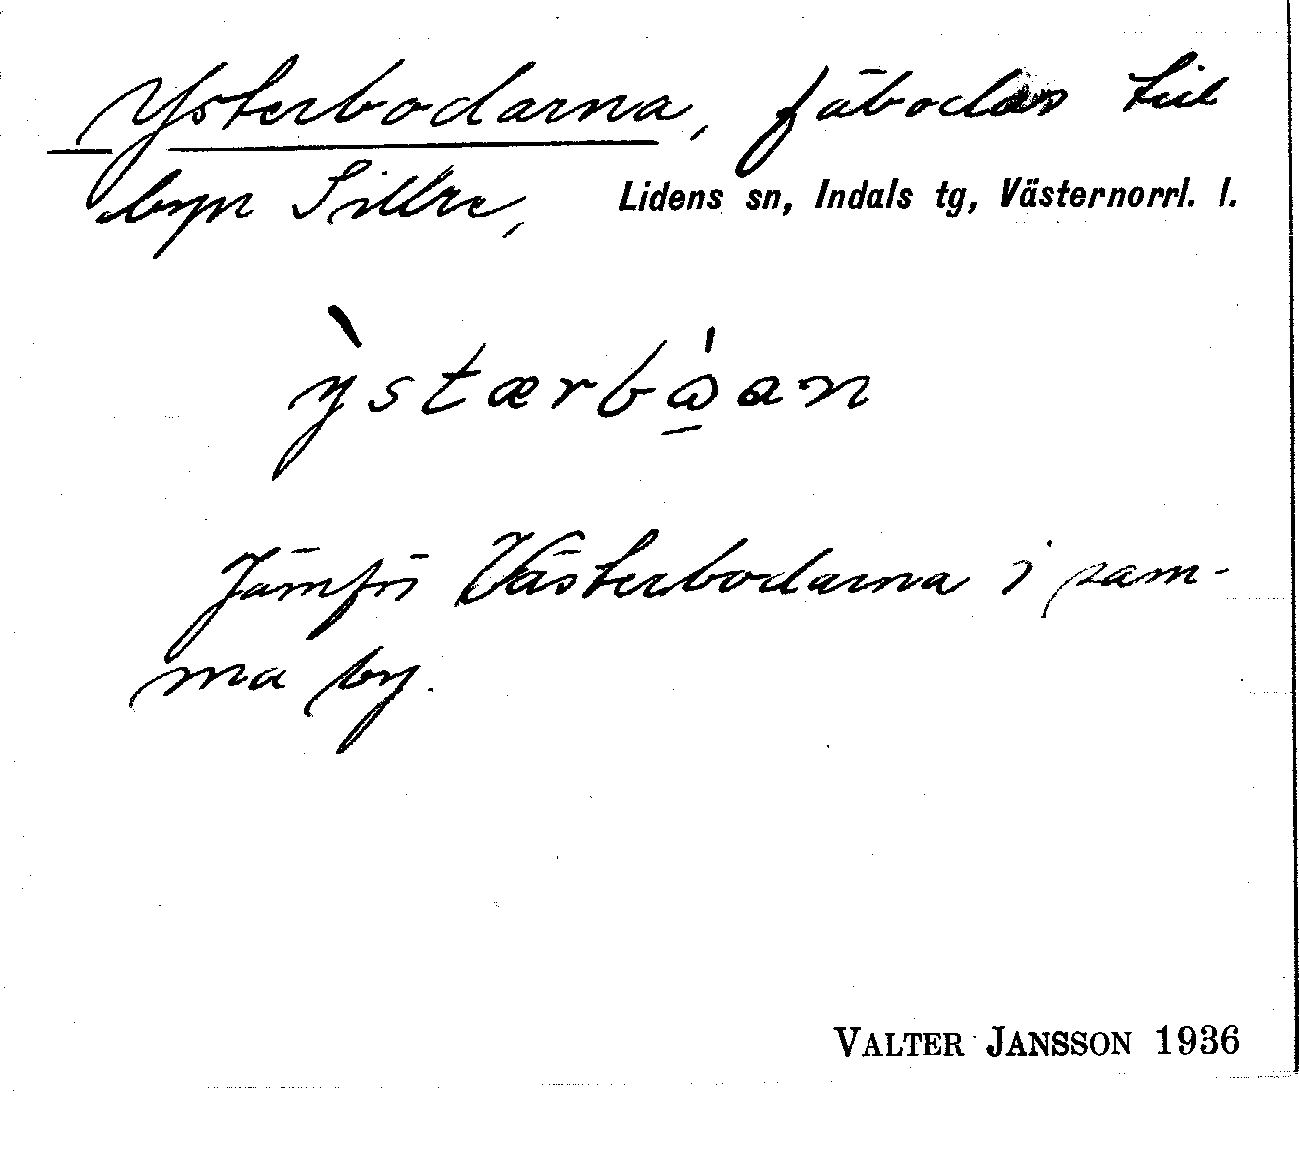 Ysterbodarna, fäbodar till
byn Sillre, Lidens sn, Indals tg, Västernorrl. l.
ỳstærbω̲̍an
Jämför Västerbodarna i sam-
ma by.
VALTER JANSSON 1936